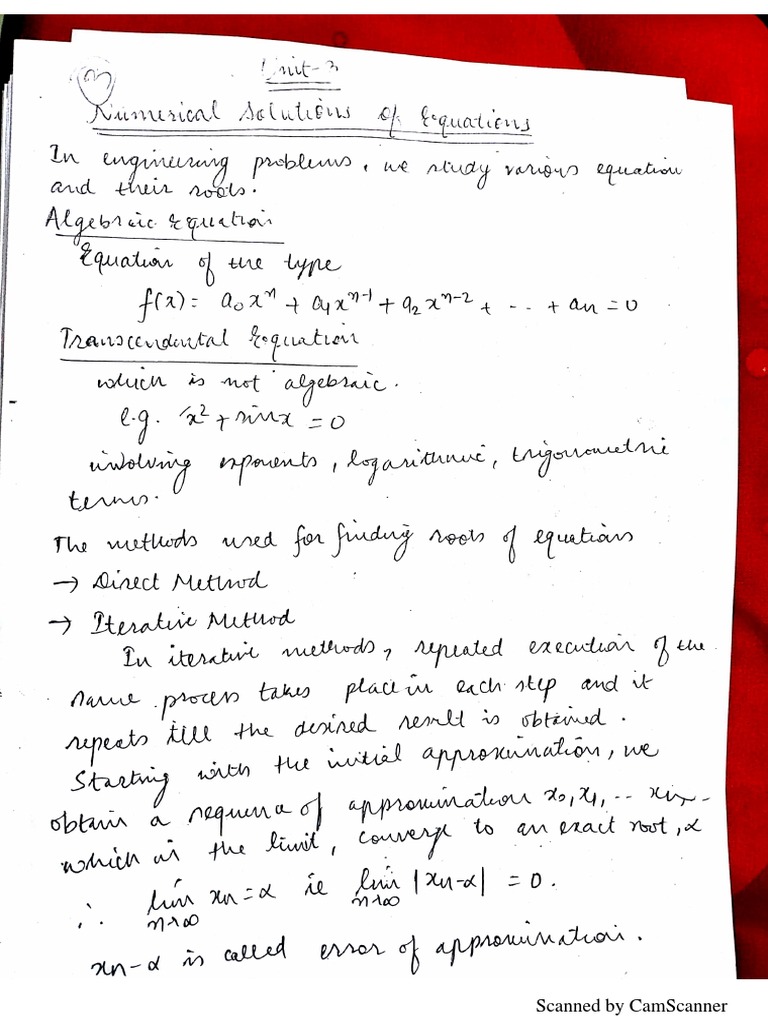 Unit-3
Numerical Solutions of Equations
In engineering problems, we study various equation
and their roots.
Algebraic Equation
Equation of the type
f(x) = a₀xⁿ + a₁xⁿ⁻¹ + a₂xⁿ⁻² + - .. + aₙ = 0
Transcendental Equation
which is not algebraic.
e.g. x² + sinx = 0
involving exponents, logarithmic, trigonometric
terms.
The methods used for finding roots of equations
→ Direct Method
→ Iterative Method
In iterative methods, repeated execution of the
same process takes place in each step and it
repeats till the desired result is obtained.
Starting with the initial approximation, we
obtain a sequence of approximation x₀, x₁, -- xₙ, -
which in the limit, converge to an exact root, α
∴ lim n→∞ xₙ = α ie lim n→∞ |xₙ-α| = 0.
xₙ-α is called error of approximation.
Scanned by CamScanner